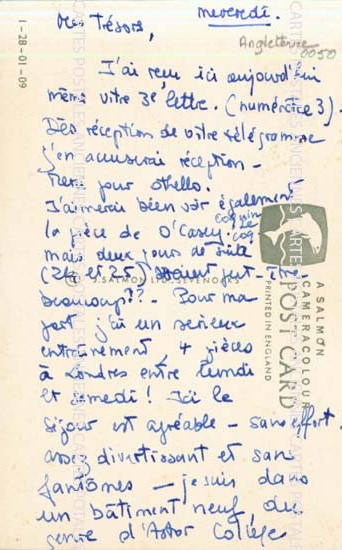 mercredi.
Mes Trésors,
Angleterre
0050
J'ai reçu ici aujourd'hui
même votre 3e lettre. (numérotée 3).
Dès réception de votre télégramme
j'en accuserai réception -
Merci pour Othello.
J'aimerai bien voir également
la pièce de O'Casey.
Coquin
le
coq
mais deux jours de suite
(24 et 25) seraient peut-être
beaucoup?? - Pour ma
part j'ai un sérieux
entrainement, 4 pièces
à Londres entre lundi
et samedi! Ici le
séjour est agréable - sans effort.
assez divertissant et sans
fantômes - je suis dans
un bâtiment neuf, du
genre d'Astor College
1-28-01-09
J. SALMON LTD. SEVENOAKS
A SALMON
CAMERACOLOUR
POST CARD
PRINTED IN ENGLAND
CARTES POSTALES ANCIENNES